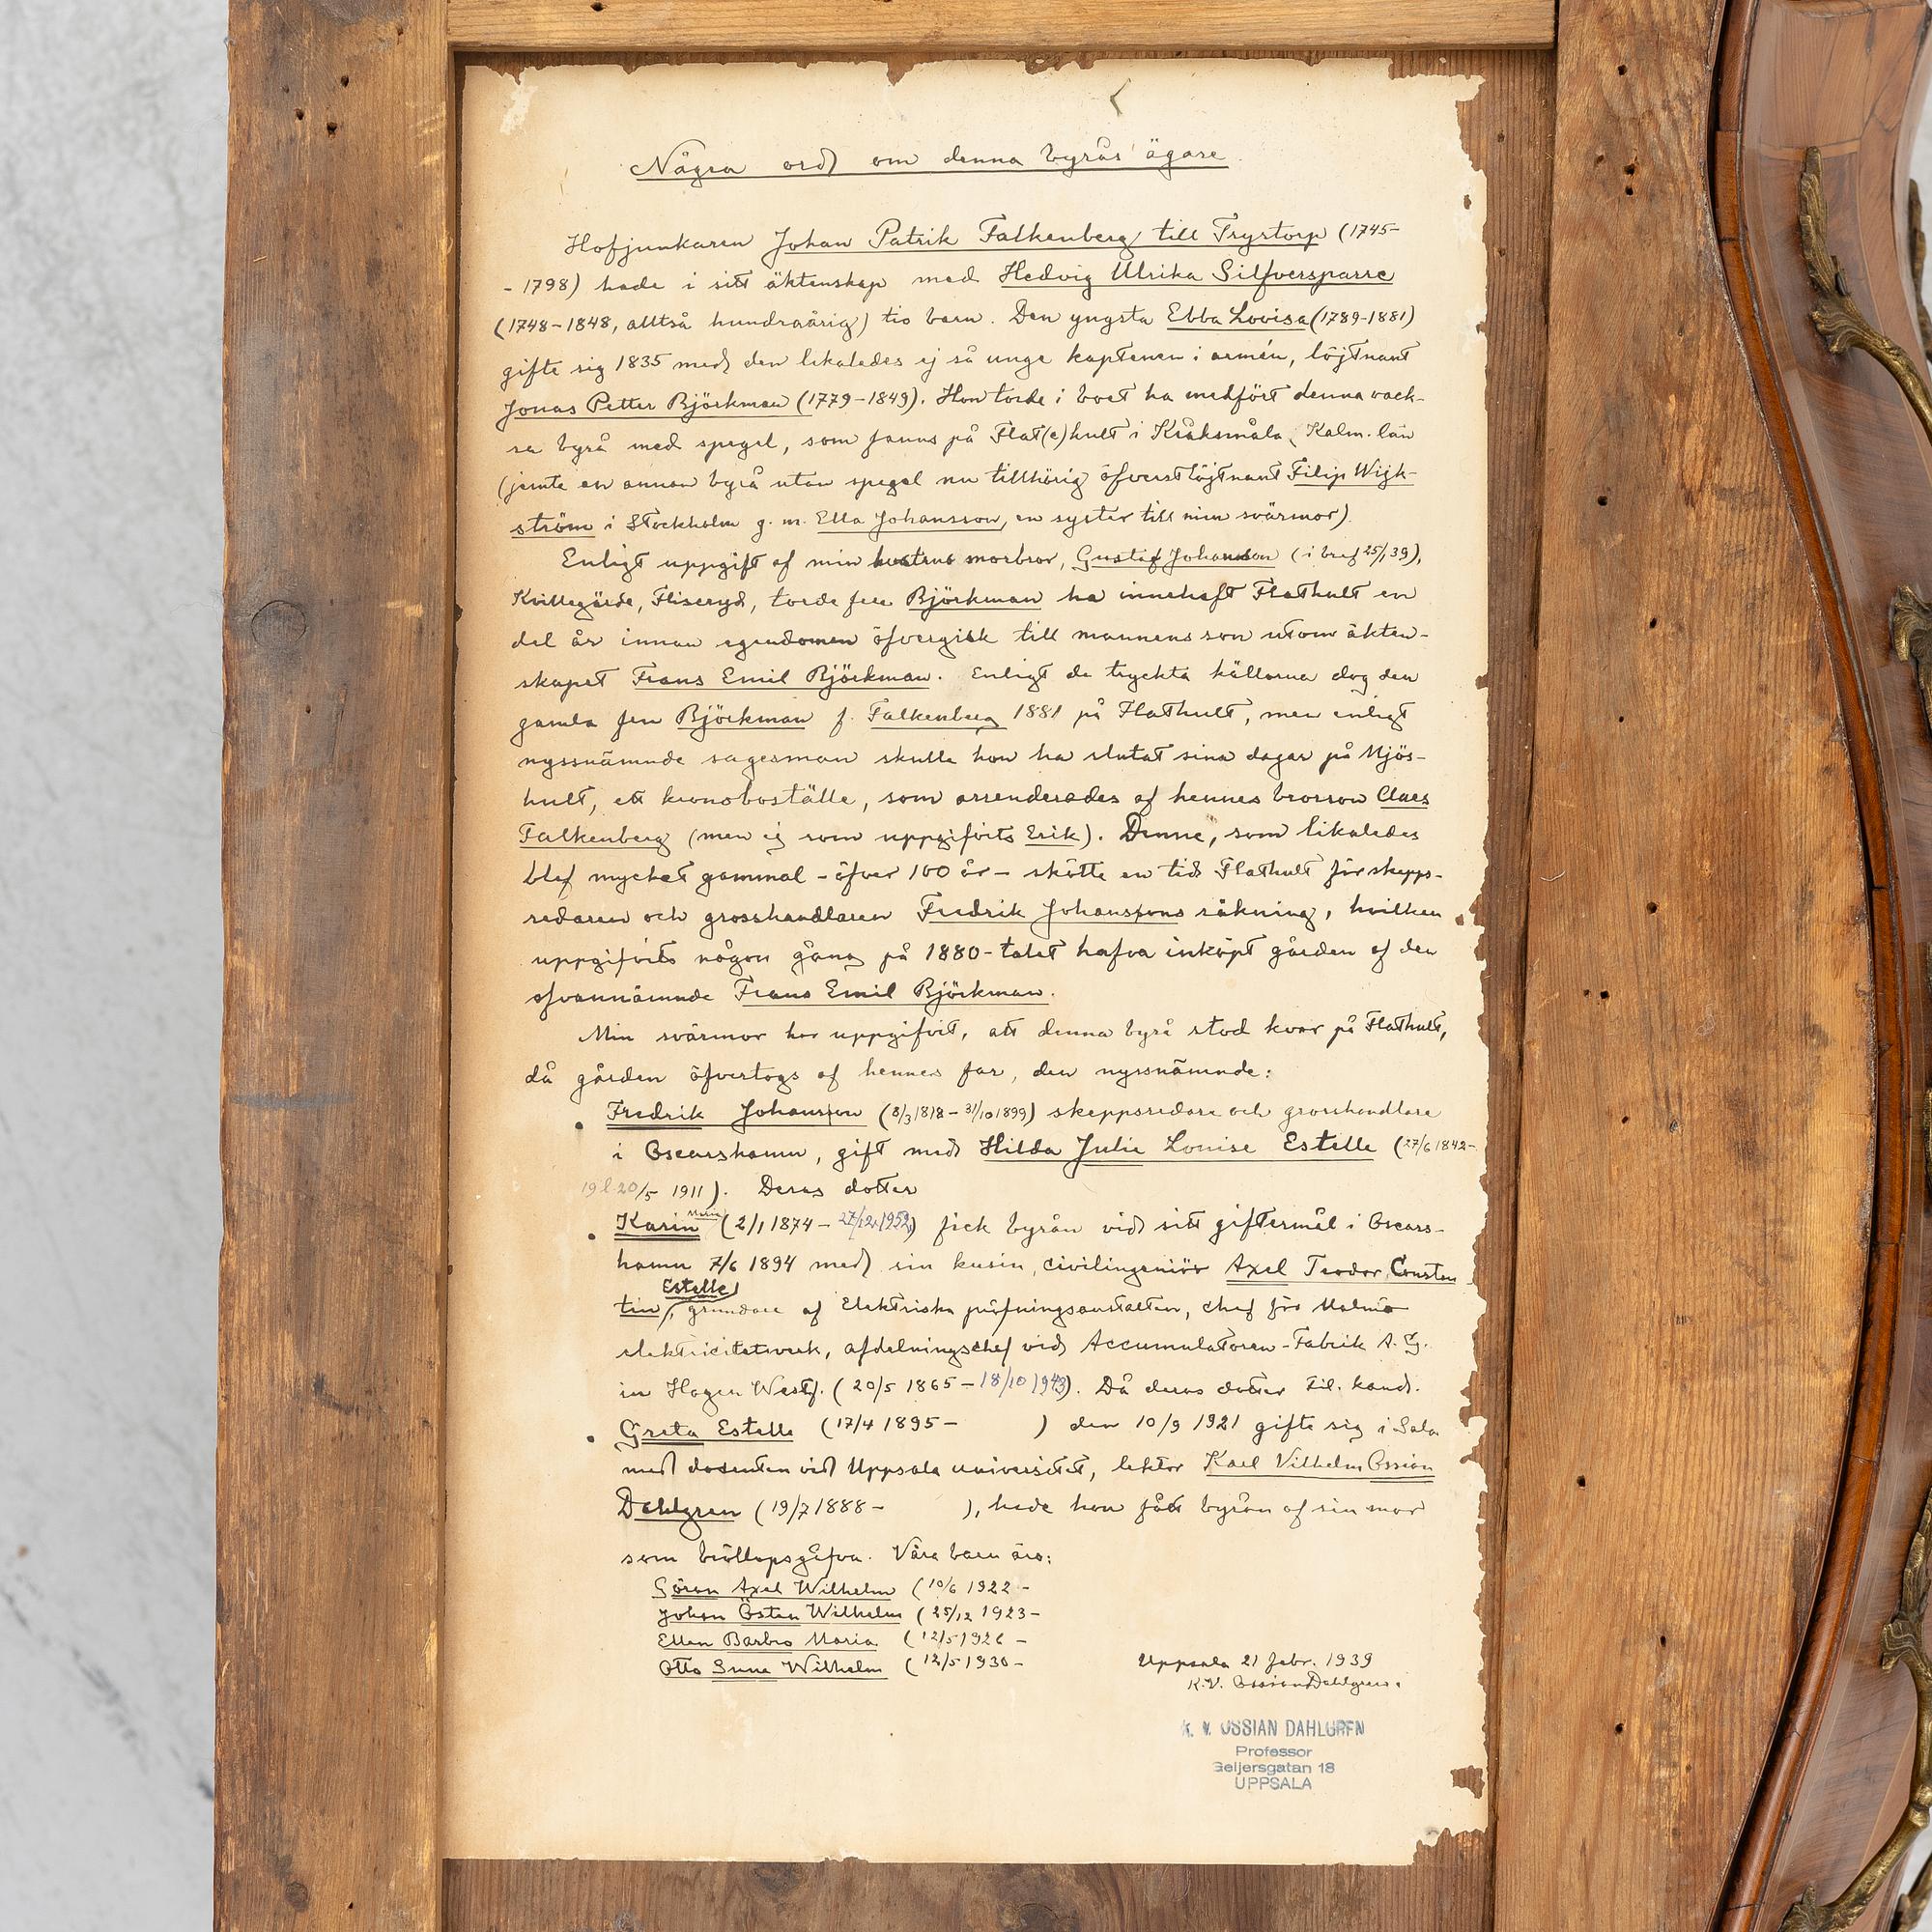 Några ord om denna byrås ägare
Hofjunkaren Johan Patrik Falkenberg till Trystorp (1745-
- 1798) hade i sitt äktenskap med Hedvig Ulrika Silfversparre
(1748-1848, alltså hundraårig) tio barn. Den yngsta Ebba Lovisa (1789-1881)
gifte sig 1835 med den likaledes ej så unge kaptenen i armén, löjtnant
Jonas Petter Björkman (1779-1849). Hon torde i boet ha medfört denna vack-
ra byrå med spegel, som fanns på Flat(e)hult i Kråksmåla, Kalm. län
(jemte en annan byrå utan spegel nu tillhörig öfverstlöjtnant Filip Wijk-
ström i Stockholm g. m. Ella Johansson, en syster till min svärmor).
Enligt uppgift af min hustrus morbror, Gustaf Johansson (i bref 25/1 39),
Kvillegärde, Fliseryd, torde fru Björkman ha innehaft Flathult en
del år innan egendomen öfvergick till mannens son utom äkten-
skapet Frans Emil Björkman. Enligt de tryckta källorna dog den
gamla fru Björkman f. Falkenberg 1881 på Flathult, men enligt
nyssnämnde sagesman skulle hon ha slutat sina dagar på Mjös-
hult, ett kronoboställe, som arrenderades af hennes brorson Claes
Falkenberg (men ej som uppgifvits Erik). Denne, som likaledes
blef mycket gammal - öfver 100 år - skötte en tid Flathult för skepps-
redaren och grosshandlaren Fredrik Johanssons räkning, hvilken
uppgifvits någon gång på 1880-talet hafva inköpt gården af den
ofvannämnde Frans Emil Björkman.
Min svärmor har uppgifvit, att denna byrå stod kvar på Flathult,
då gården öfvertogs af hennes far, den nyssnämnde:
Fredrik Johansson (8/3 1818 - 31/10 1899) skeppsredare och grosshandlare
i Oscarshamn, gift med Hilda Julie Louise Estelle (27/6 1842-
20/5 1911). Deras dotter
Karin Maria (2/1 1874 - 27/12 1952) fick byrån vid sitt giftermål i Oscars-
hamn 7/6 1894 med sin kusin, civilingeniör Axel Teodor Constan
tin Estelle, grundare af Elektriska pröfningsanstalten, chef för Malmö
elektricitetsverk, afdelningschef vid Accumulatoren-Fabrik A. G.
in Hagen Westf. (20/5 1865 - 18/10 1943). Då deras dotter Fil. kand.
Greta Estelle (17/4 1895 - ) den 10/9 1921 gifte sig i Sala
med docenten vid Uppsala universitet, lektor Karl Vilhelm Ossian
Dahlgren (19/7 1888 - ), hade hon fått byrån af sin mor
som bröllopsgåfva. Våra barn äro:
Göran Axel Wilhelm (10/6 1922 -
Johan Östen Wilhelm (25/12 1923 -
Ellen Barbro Maria (12/5 1926 -
Otto Sune Wilhelm (12/5 1930 -
Uppsala 21 febr. 1939
K.V. Ossian Dahlgren.
K. V. OSSIAN DAHLGREN
Professor
Geijersgatan 18
UPPSALA